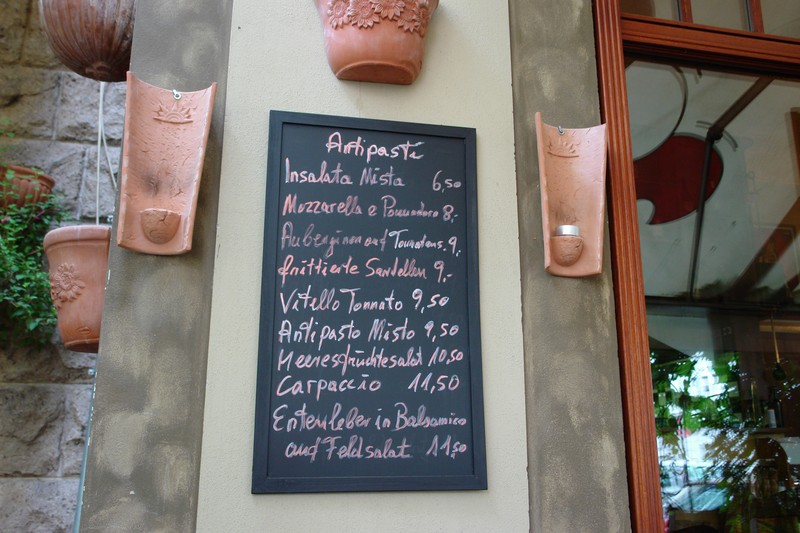 Antipasti
Insalata Mista 6,50
Mozzarella e Pomodoro 8,-
Auberginen auf Tomatens. 9,-
frittierte Sardellen 9,-
Vitello Tonnato 9,50
Antipasto Misto 9,50
Meeresfrüchtesalat 10,50
Carpaccio 11,50
Entenleber in Balsamico
auf Feldsalat 11,50